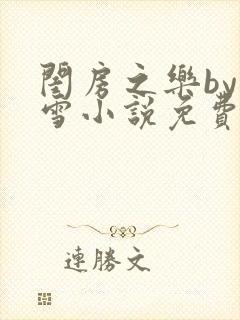 閨房之樂by
雪小說免費
連勝文